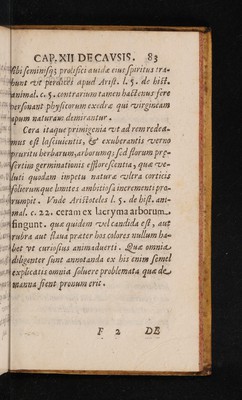 CAP. XII DE CAVSIS. 83
sibi seminisq; prolifici auidæ eius spiritus tra-
hunt vt perdices apud Arist. l. 5. de hist.
animal. c. 5. contrarium tamen hactenus fere
personant physicorum exedræ qui virgineam
apum naturam demirantur.
Cera itaque primigenia vt ad rem redea-
mus est lasciuientis, & exuberantis verno
pruritu herbarum, arborumq; sed florum præ-
sertim germinationis efflorescentia, quæ ve-
luti quodam impetu naturæ vltra corticis
foliorumque limites ambitiosa incrementi pro-
rumpit. Vnde Aristoteles l. 5. de hist. ani-
mal. c. 22. ceram ex lacryma arborum
fingunt. quæ quidem vel candida est, aut
rubra aut flaua præter hos colores nullum ha-
bet vt curiosius animaduerti. Quæ omnia
diligenter sunt annotanda ex his enim semel
explicatis omnia soluere problemata quæ de
manna fient pronum erit.
F 2 DE